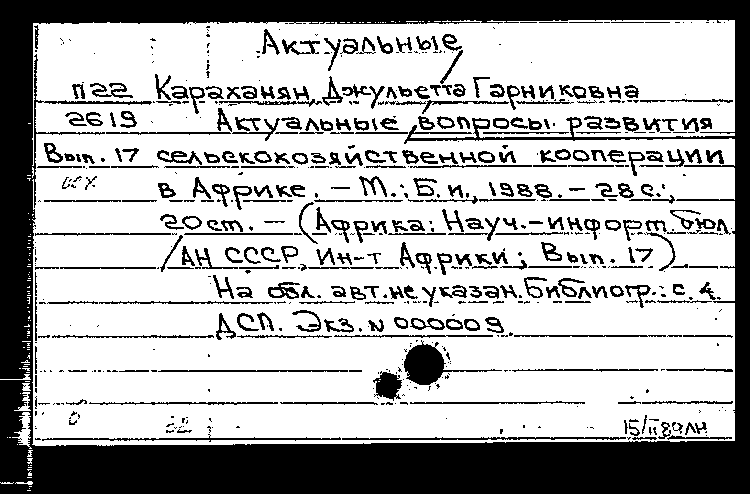 Актуальные
П22 Караханян, Джульетта Гарниковна
2619 Актуальные вопросы развития
Вып. 17 сельскохозяйственной кооперации
исх в Африке. – М.: Б.и., 1988. – 28 с.;
20 ст. – (Африка: Науч.-информ. бюл.
/АН СССР, Ин-т Африки; Вып. 17)
На обл. авт. не указан. Библиогр.: с. 4.
ДСП. Экз. N 000009.
б 62
15/II 89 ЛН